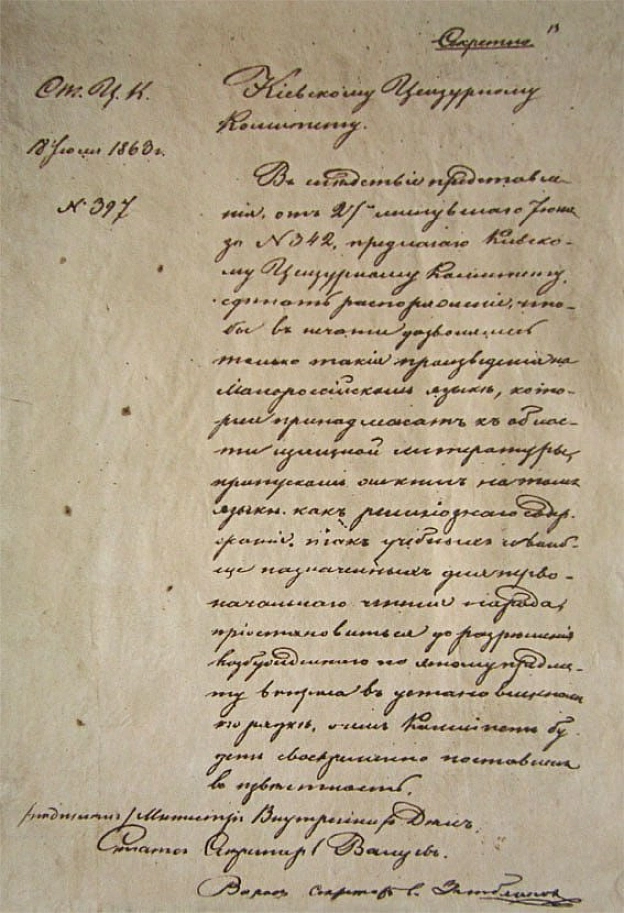 Секретно
13
Ст. Ц. К.
18 Июля 1863 г.
№ 397
Кіевскому Цензурному
Комитету.
Въ слѣдствіе представле-
нія, отъ 27го минувшаго Іюня
за № 342, предлагаю Кіевско-
му Цензурному Комитету,
сдѣлать распоряженіе, что-
бы въ печати дозволялись
только такія произведенія на
Малороссійскомъ языкѣ, кото-
рыя принадлежатъ къ облас-
ти изящной литературы,
пропускомъ же книгъ на томъ
языкѣ какъ религіознаго содер-
жанія, такъ учебныхъ и вооб-
ще назначенныхъ для перво-
начальнаго чтенія народа,
пріостановиться до разрѣшенія
возбужденнаго по этому предме-
ту вопроса въ установленномъ
порядкѣ, о чемъ Комитетъ бу-
детъ своевременно поставленъ
въ извѣстность.
/подписалъ/ Министръ Внутреннихъ Дѣлъ,
Статсъ Секретарь Валуевъ.
секретарь